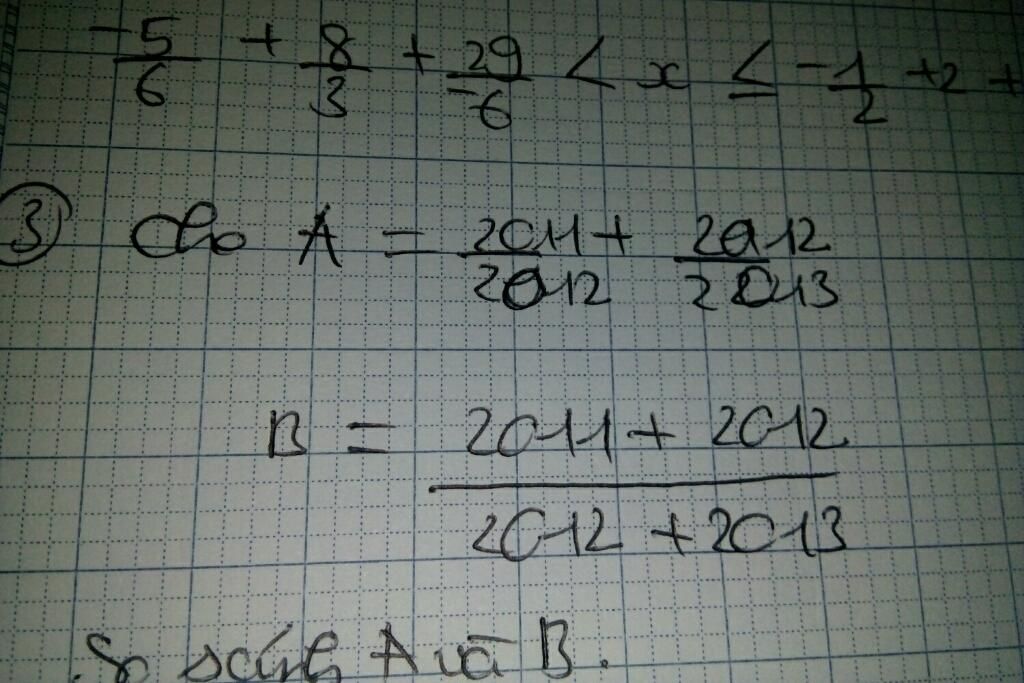 -5/6 + 8/3 + 29/-6 < x ≤ -1/2 + 2 +
③ Cho A = 2011/2012 + 2012/2013
B = (2011 + 2012)/(2012 + 2013)
So sánh A và B.